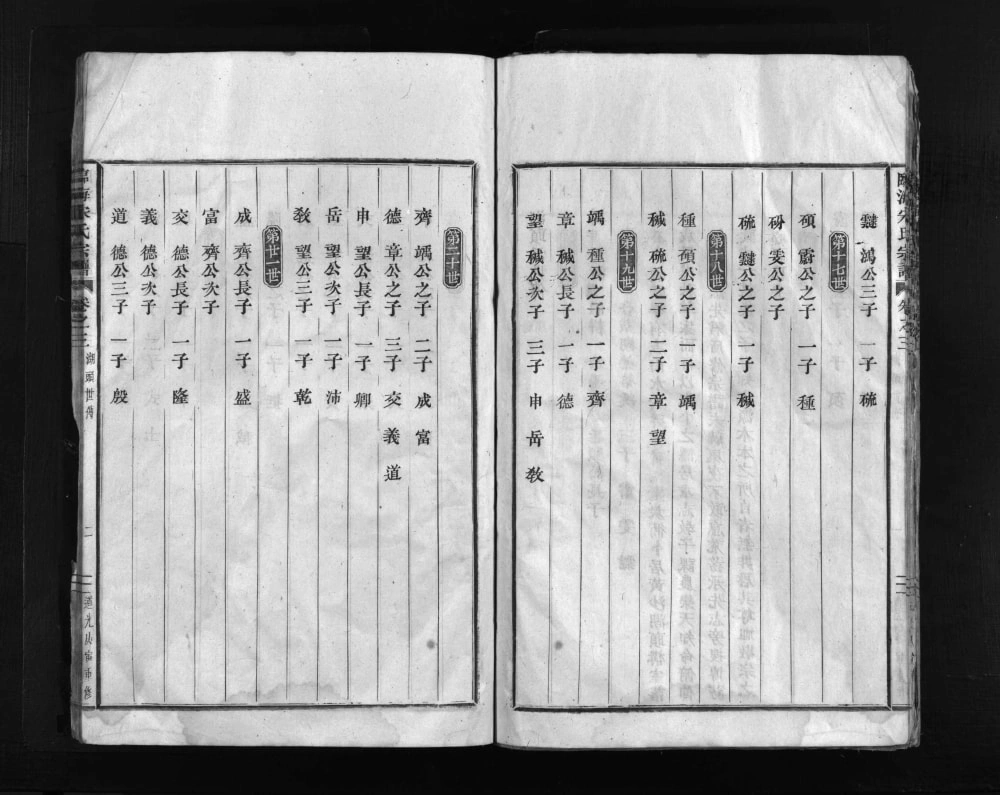 臨海宋氏宗譜 卷之三
靆 鴻公三子 一子 硫
第十七世
碩 霨公之子 一子 種
砏 雯公之子
硫 靆公之子 一子 穢
第十八世
種 碩公之子 一子 竬
穢 硫公之子 二子 章 望
第十九世
竬 種公之子 一子 齊
章 穢公長子 一子 德
望 穢公次子 三子 申 岳 敎
第二十世
齊 竬公之子 二子 成 富
德 章公之子 三子 交 義 道
申 望公長子 一子 卿
岳 望公次子 一子 沛
敎 望公三子 一子 乾
第廿一世
成 齊公長子 一子 盛
富 齊公次子
交 德公長子 一子 隆
義 德公次子
道 德公三子 一子 殷
臨海宋氏宗譜 卷之三 湖頭世傳 二 道光庚寅重修